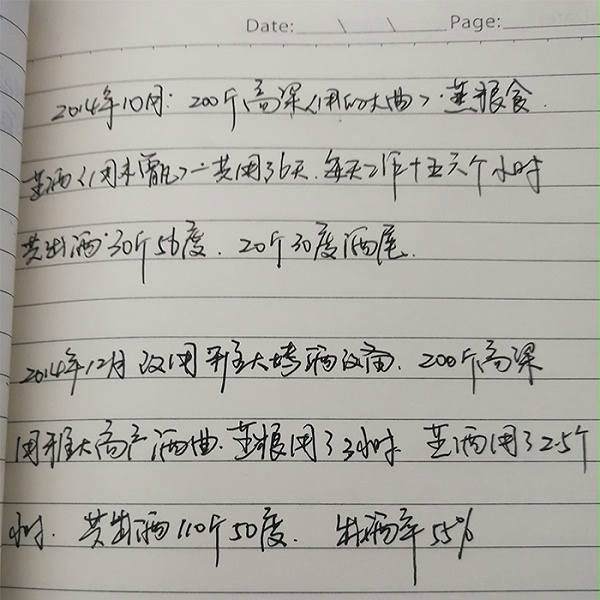 Date: \ \ Page:
2014年10月: 200斤高梁<用的大曲>.蒸粮食
蒸酒<用木甑>一共用了6天.每天工作十五六个小时
共出酒:30斤56度. 20斤30度酒尾.
2014年12月 改用雅大烤酒设备. 200斤高梁
用雅大高产酒曲.蒸粮用了3小时. 蒸酒用了2.5个
小时. 共出酒110斤50度. 出酒率55%